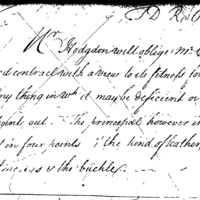 J D R
Mr Hodgdon will oblige Mr
d contract with a view to its fitness for
ny thing in wh it may be deficient or
oint out. The principal however in
t in four points: the kind of leather
& the buckles.